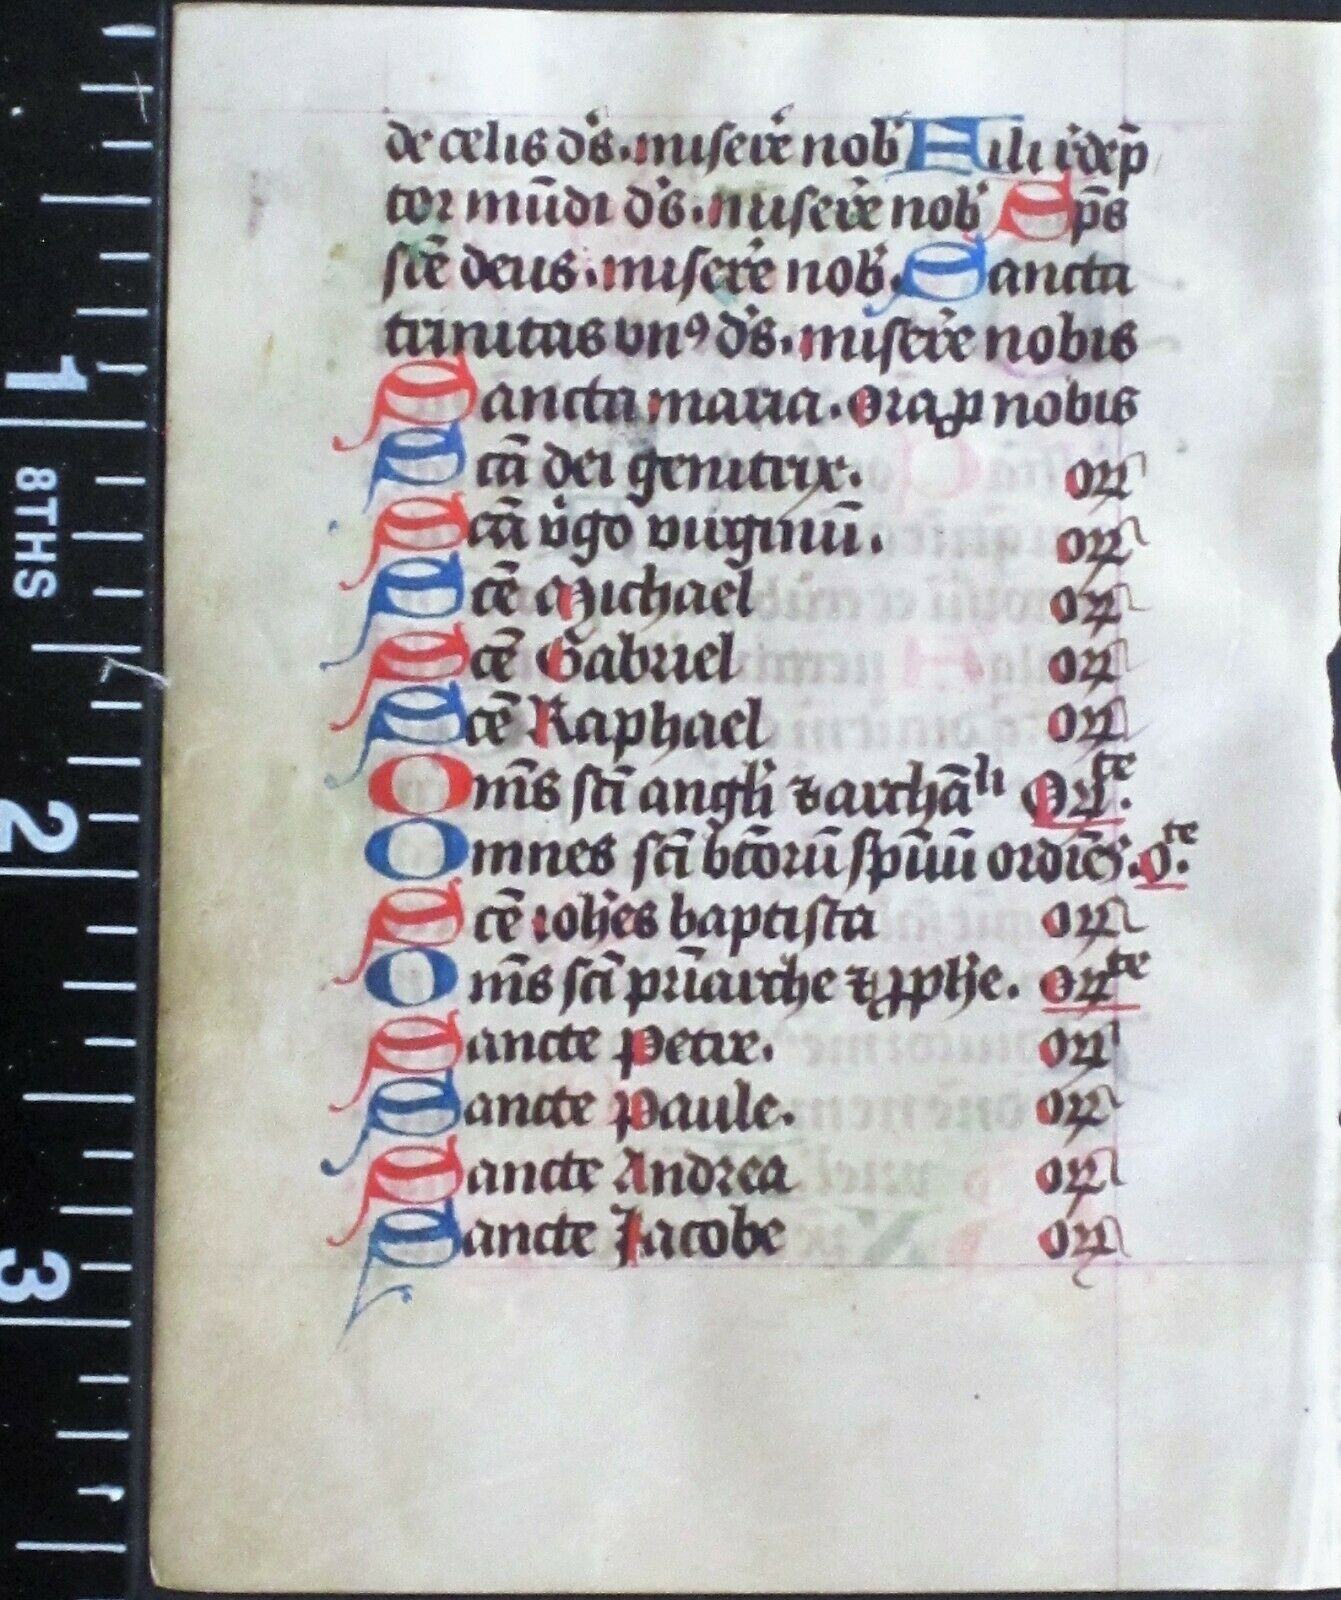 de celis ds. misere nob Fili redēp
tor mūdi ds. misere nob Sps
scē deus. misere nob. Sancta
trinitas vn9 ds. misere nobis
Sancta maria. Ora ꝓ nobis
Scā dei genitrix. or
Scā vgo virginū. or
Scē Michael or
Scē Gabriel or
Scē Raphael or
Oms sci angli et archāli Orte.
Omnes sci btorū spūū ordies. Ote.
Scē iohes baptista or
Oms sci priarche et ꝓphe. orte
Sancte Petre. or
Sancte Paule. or
Sancte Andrea or
Sancte Jacobe or
1
8THS
2
3